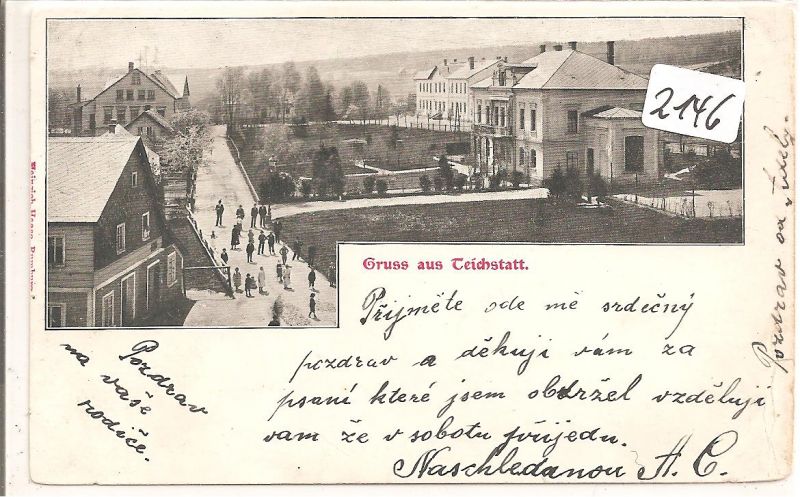 2146
Gruss aus Teichstatt.
Přijměte ode mě srdečný
pozdrav a děkuji vám za
psaní které jsem obdržel vzděluji
vam že v sobotu přijedu.
Naschledanou A. C.
Pozdrav
na vaše
rodiče.
pozdrav od
Heinrich